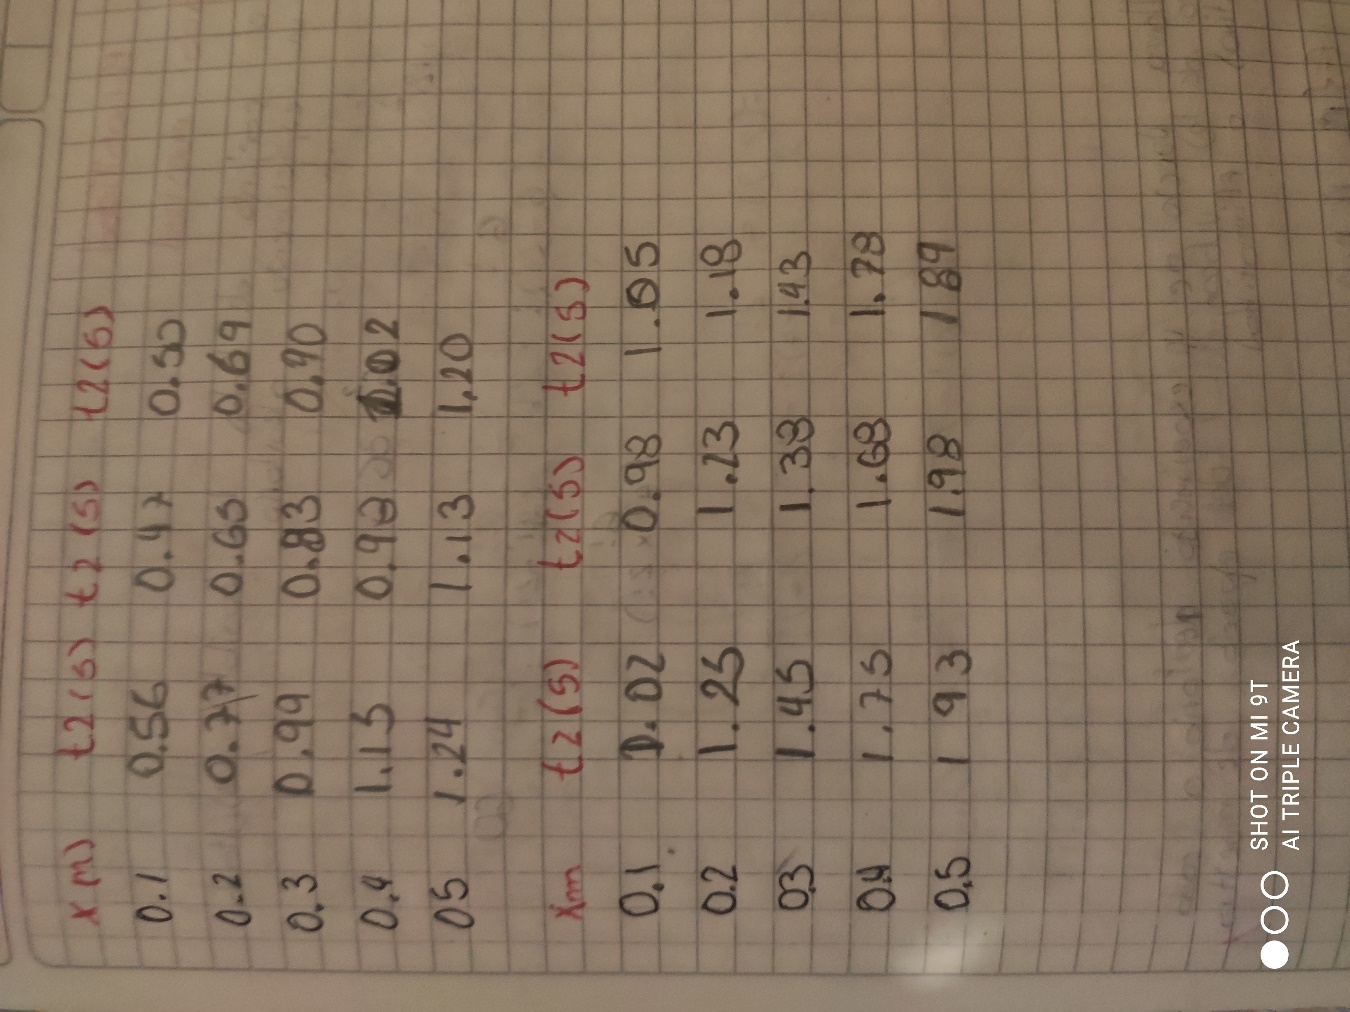 x (m) t2(s) t2(s) t2(s)
0.1 0.56 0.47 0.50
0.2 0.77 0.65 0.69
0.3 0.99 0.83 0.90
0.4 1.15 0.98 1.02
05 1.24 1.13 1.20
xm t2(s) t2(s) t2(s)
0.1 1.02 0.98 1.05
0.2 1.25 1.23 1.18
03 1.45 1.38 1.43
0.4 1.75 1.68 1.78
0.5 1 93 1.98 1 89
SHOT ON MI 9T
AI TRIPLE CAMERA